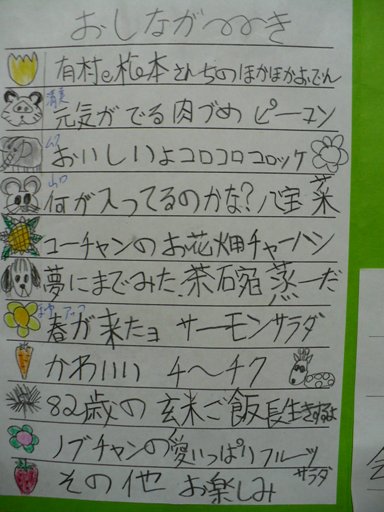 おしながき
有村と桩本さんちのほかほかおでん
清美
元気がでる肉づめピーマン
おいしいョコロコロコロッケ
山口
何が入ってるのかな?八宝菜
コーチャンのお花畑チャーハン
夢にまでみた、茶碗蒸ーだ
春が来たョ サーモンサラダ
かわいい チ〜チク
82歳の玄米ご飯長生きするよ
ノブチャンの愛いっぱいフルーツサラダ
その他 お楽しみ